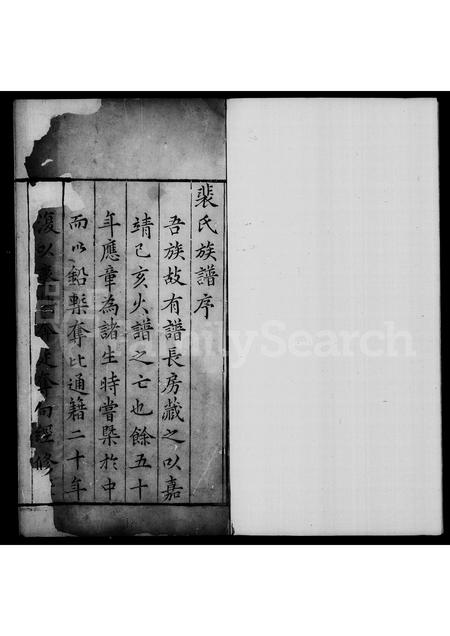 裴氏族譜序
吾族故有譜長房藏之以嘉
靖己亥火譜之亡也餘五十
年應章為諸生時嘗槩於中
而以鉛槧奪比通籍二十年
復以 向經修
FamilySearch